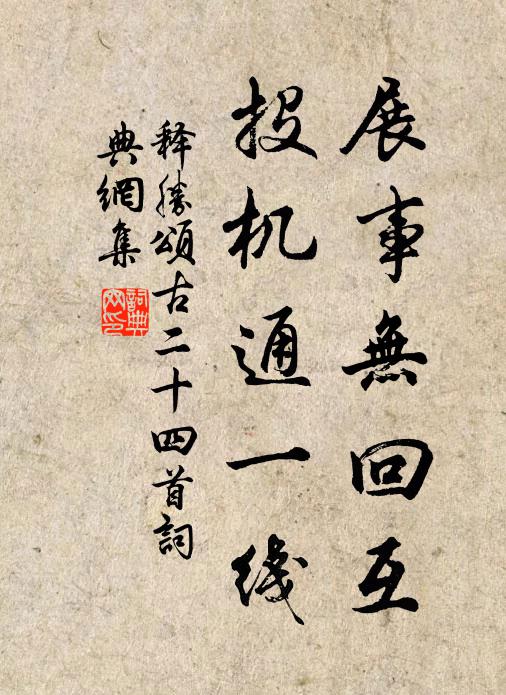 展事無回互
投机通一綫
释勝頌古二十四首詞
典網集
詞典網印